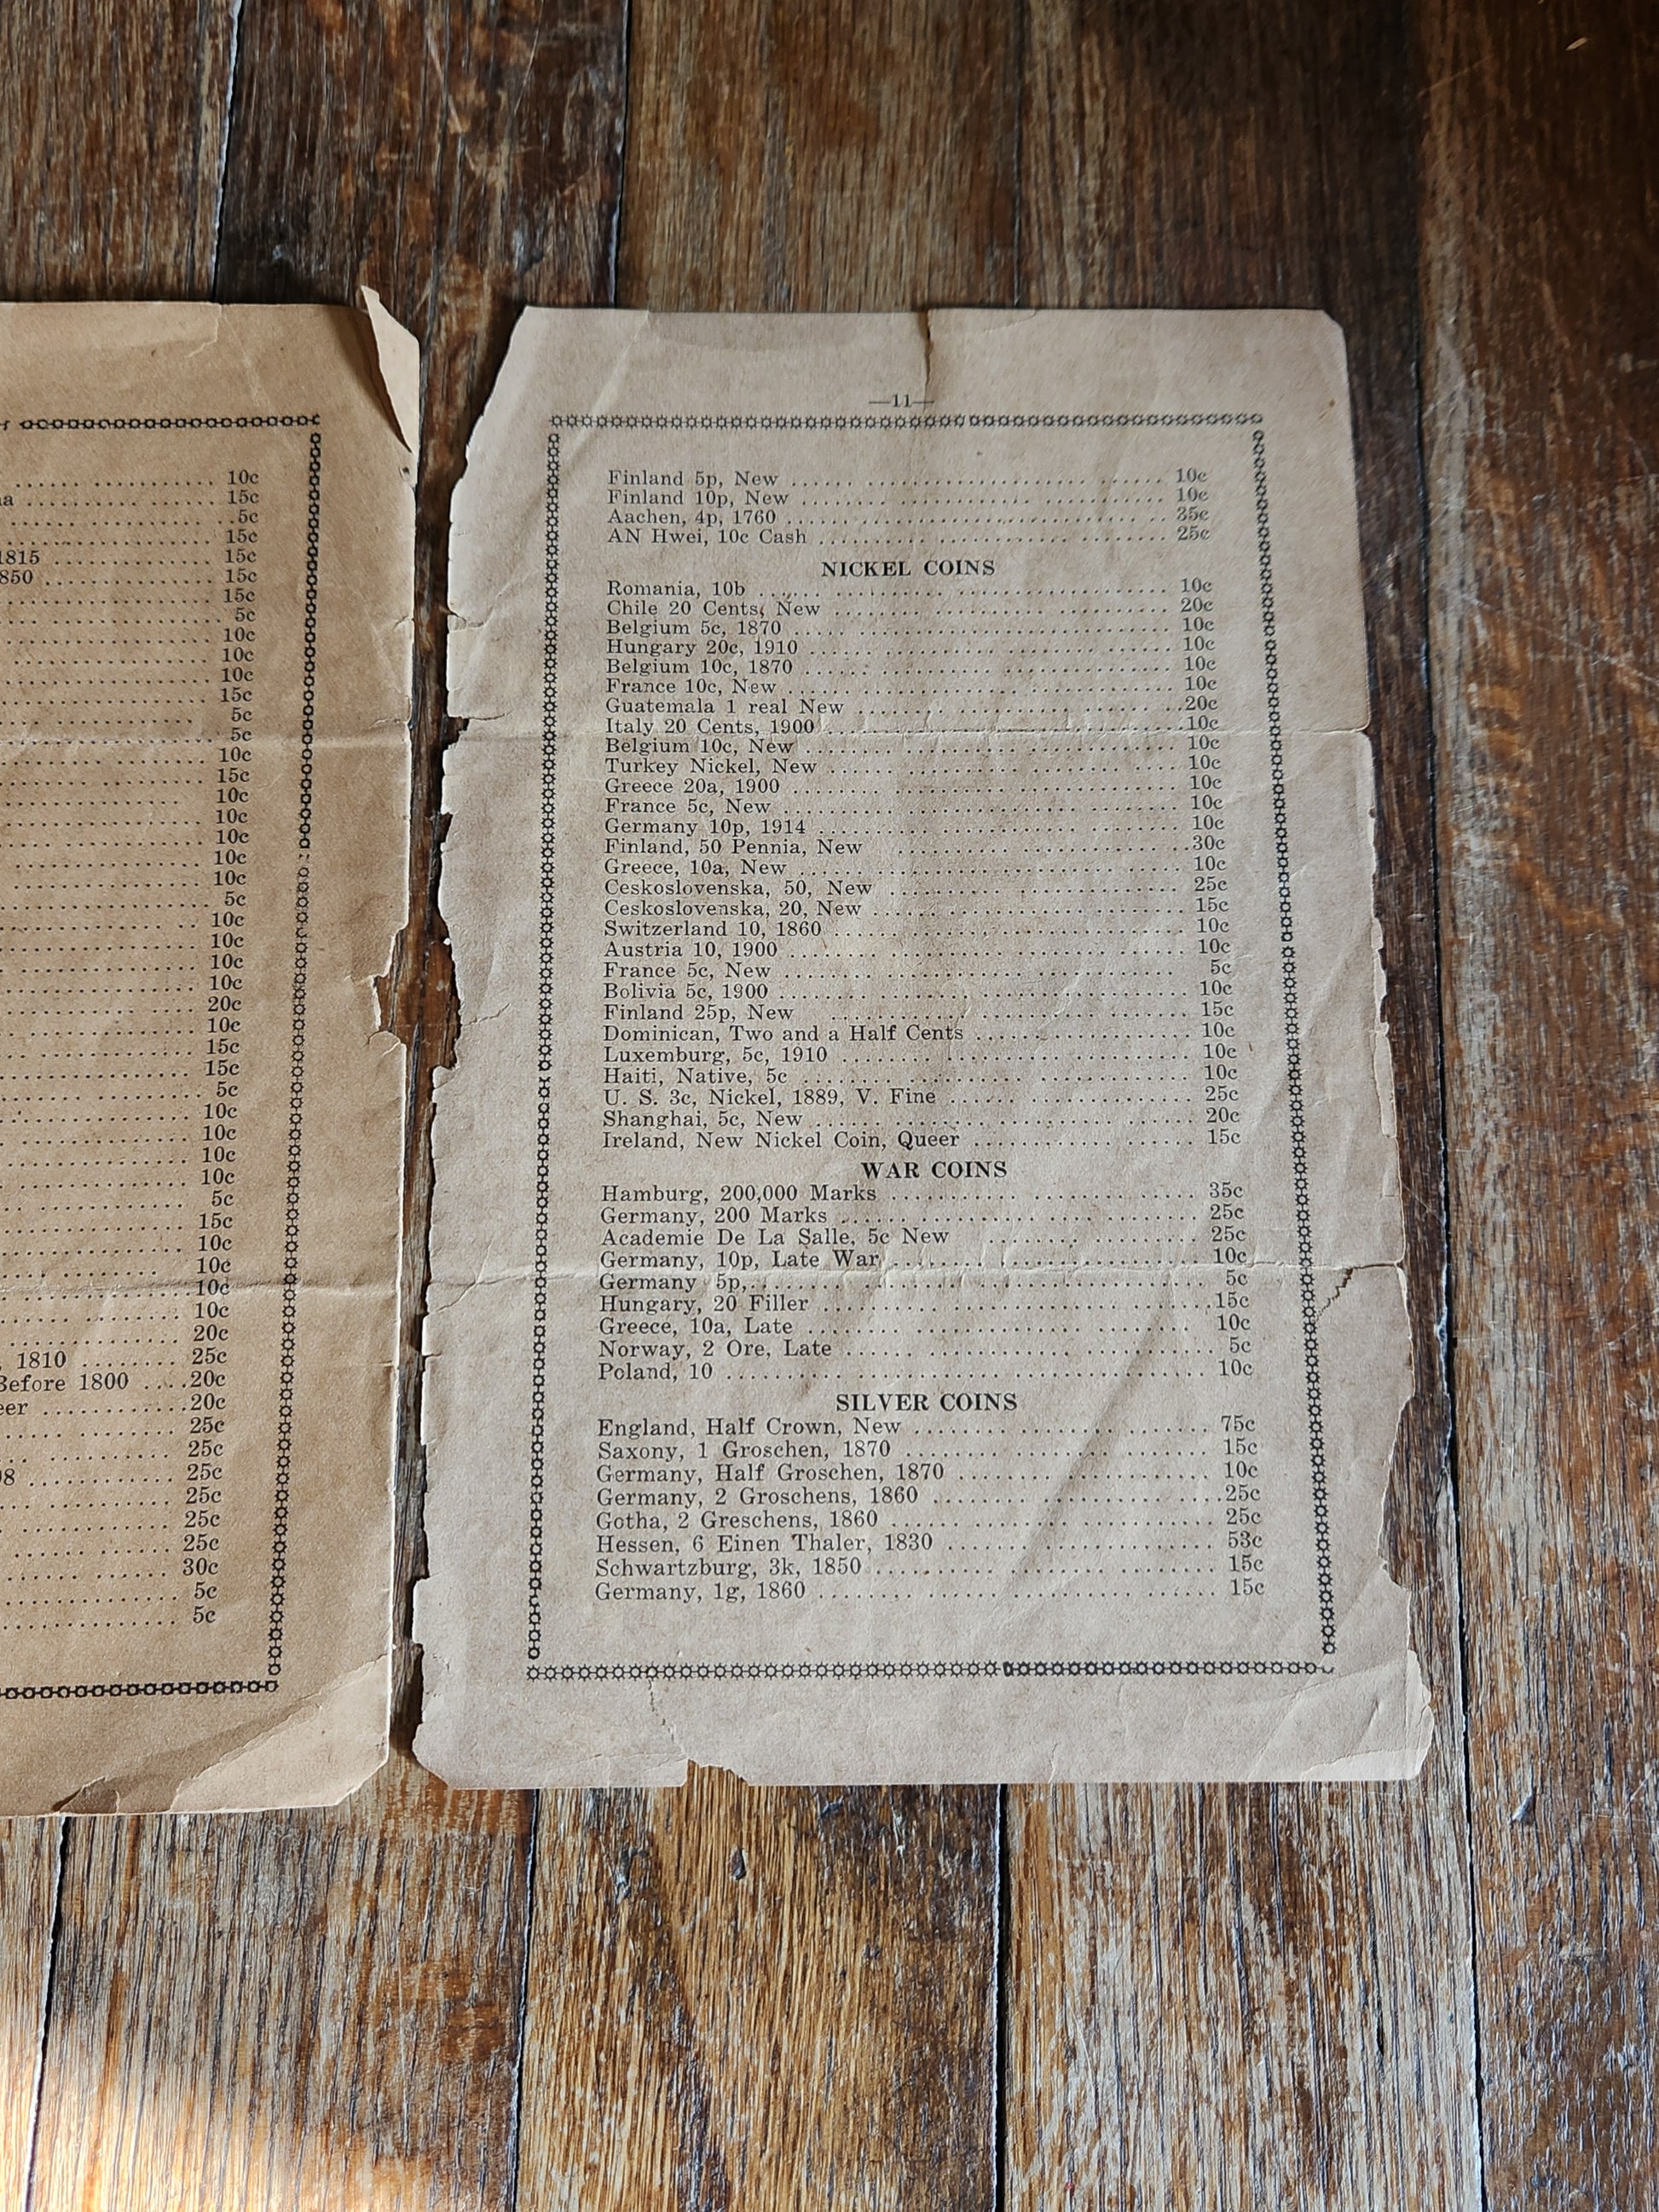 10c
15c
5c
15c
1815 15c
15c
15c
5c
10c
10c
10c
15c
5c
5c
10c
15c
10c
10c
10c
10c
10c
5c
10c
10c
10c
10c
20c
10c
15c
15c
5c
10c
10c
10c
10c
5c
15c
10c
10c
10c
10c
20c
1810 25c
Before 1800 20c
20c
25c
25c
25c
25c
25c
25c
30c
5c
5c
—11—
Finland 5p, New 10c
Finland 10p, New 10c
Aachen, 4p, 1760 35c
AN Hwei, 10c Cash 25c
NICKEL COINS
Romania, 10b 10c
Chile 20 Cents, New 20c
Belgium 5c, 1870 10c
Hungary 20c, 1910 10c
Belgium 10c, 1870 10c
France 10c, New 10c
Guatemala 1 real New 20c
Italy 20 Cents, 1900 10c
Belgium 10c, New 10c
Turkey Nickel, New 10c
Greece 20a, 1900 10c
France 5c, New 10c
Germany 10p, 1914 10c
Finland, 50 Pennia, New 30c
Greece, 10a, New 10c
Ceskoslovenska, 50, New 25c
Ceskoslovenska, 20, New 15c
Switzerland 10, 1860 10c
Austria 10, 1900 10c
France 5c, New 5c
Bolivia 5c, 1900 10c
Finland 25p, New 15c
Dominican, Two and a Half Cents 10c
Luxemburg, 5c, 1910 10c
Haiti, Native, 5c 10c
U. S. 3c, Nickel, 1889, V. Fine 25c
Shanghai, 5c, New 20c
Ireland, New Nickel Coin, Queer 15c
WAR COINS
Hamburg, 200,000 Marks 35c
Germany, 200 Marks 25c
Academie De La Salle, 5c New 25c
Germany, 10p, Late War 10c
Germany 5p, 5c
Hungary, 20 Filler 15c
Greece, 10a, Late 10c
Norway, 2 Ore, Late 5c
Poland, 10 10c
SILVER COINS
England, Half Crown, New 75c
Saxony, 1 Groschen, 1870 15c
Germany, Half Groschen, 1870 10c
Germany, 2 Groschens, 1860 25c
Gotha, 2 Greschens, 1860 25c
Hessen, 6 Einen Thaler, 1830 53c
Schwartzburg, 3k, 1850 15c
Germany, 1g, 1860 15c